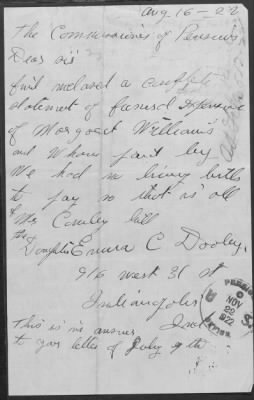 Aug 16 - 22
The Commissioner of Pensions
Dear sir
find inclosed a complete
statement of funeral Expense
of Margaret Williams
and Whom paid by
We had no livry bill
to pay so that is all
Mr Conley bill
the Daughter Emma C Dooley.
916 west 31 st
Indianapolis
Ind
This is in answer
to your letter of July 9 th
NOV
22
1922